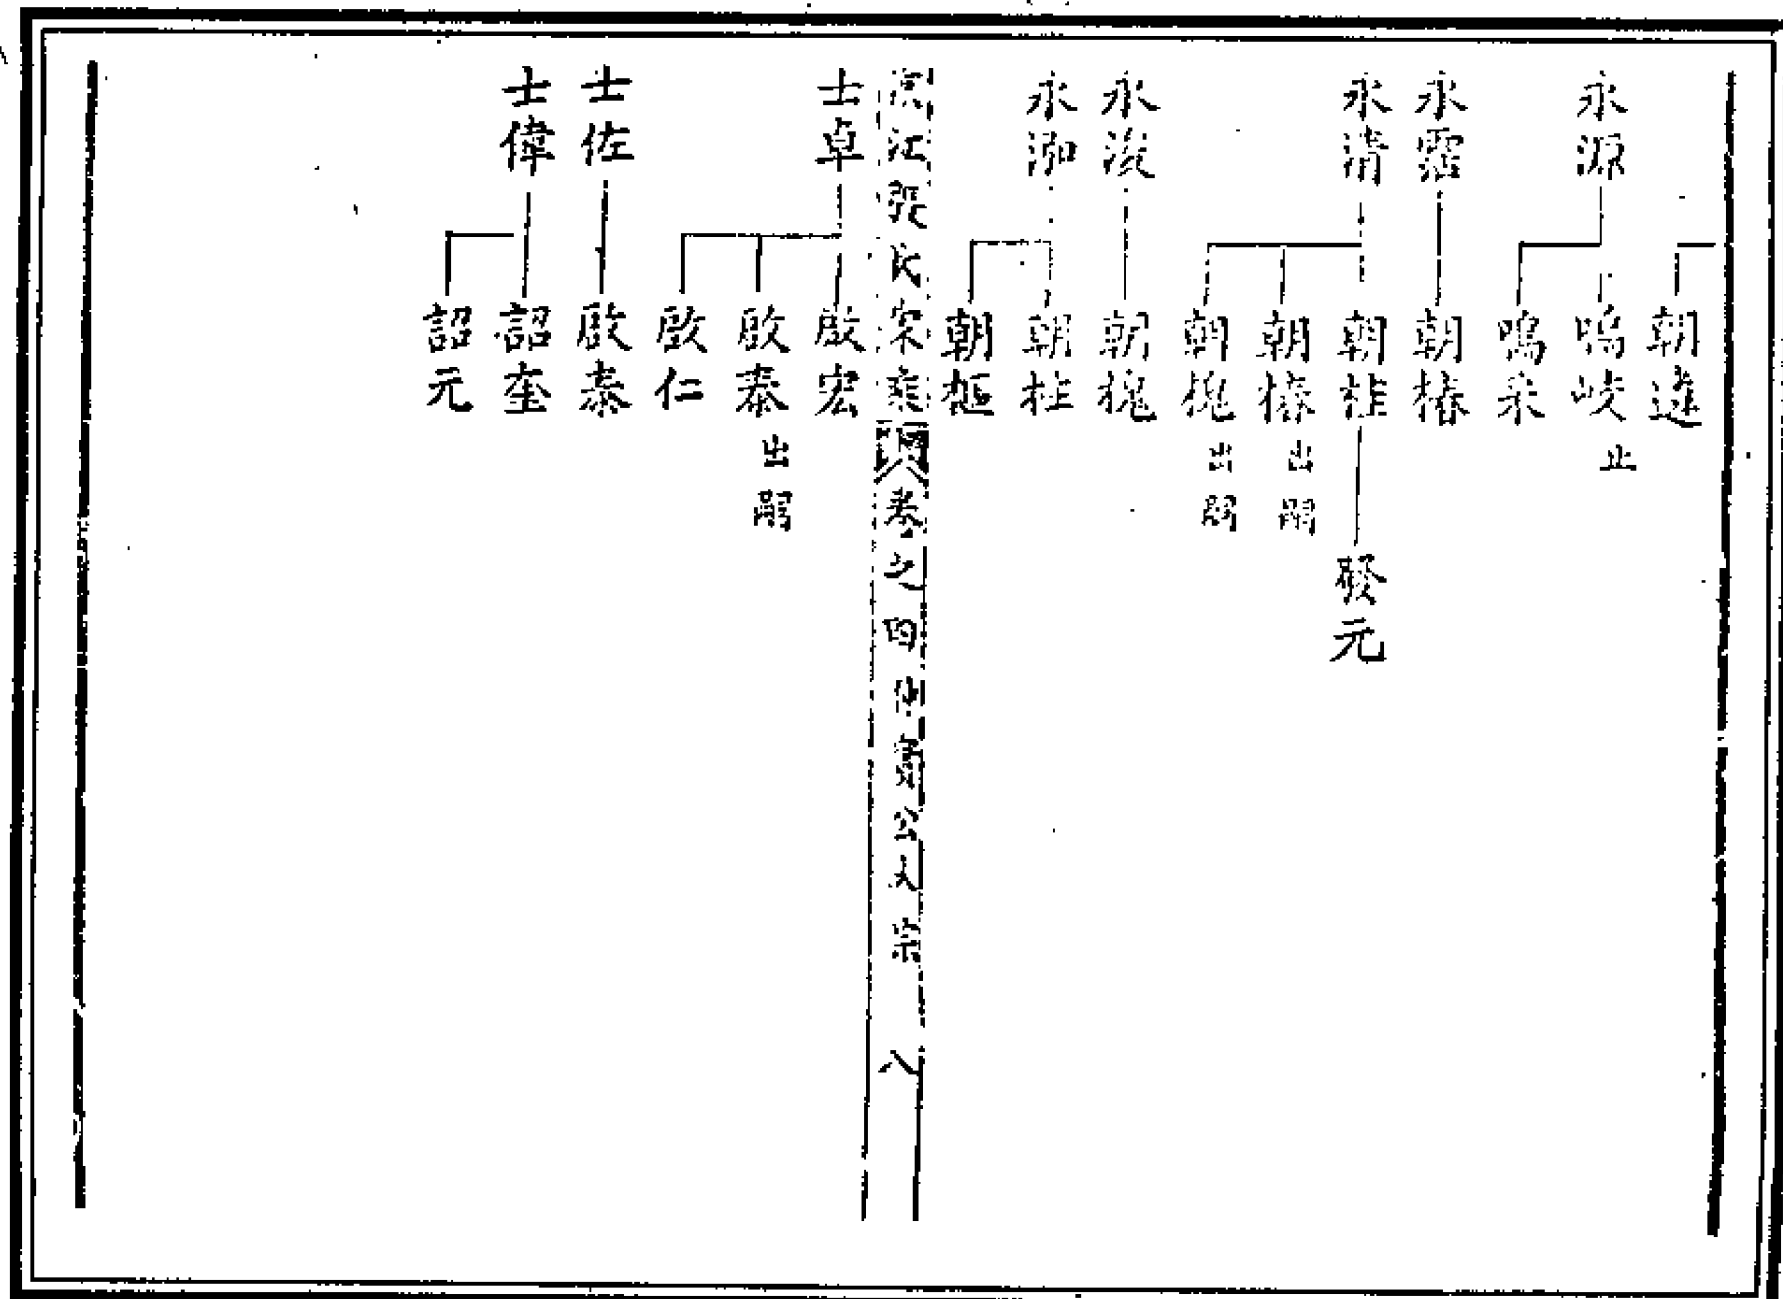 朝進
永源
鳴岐 止
鳴采
永霑
朝椿
永清
朝柱
發元
朝椿 出嗣
朝槐 出嗣
永浚
朝槐
永泇
朝柱
朝樞
江張氏宗乘 卷之四 公支 八
士卓
啟宏
啟泰 出嗣
啟仁
士佐
啟泰
士偉
詔奎
詔元